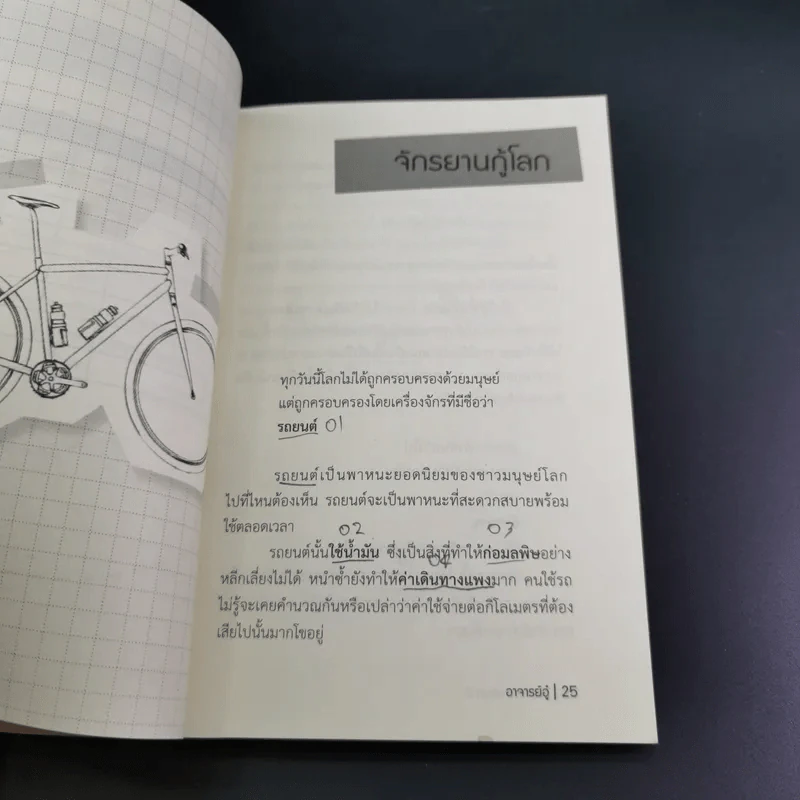 จักรยานกู้โลก
ทุกวันนี้โลกไม่ได้ถูกครอบครองด้วยมนุษย์
แต่ถูกครอบครองโดยเครื่องจักรที่มีชื่อว่า
รถยนต์ 01
รถยนต์เป็นพาหนะยอดนิยมของชาวมนุษย์โลก
ไปที่ไหนต้องเห็น รถยนต์จะเป็นพาหนะที่สะดวกสบายพร้อม
ใช้ตลอดเวลา
02 03
รถยนต์นั้นใช้น้ำมัน ซึ่งเป็นสิ่งที่ทำให้ก่อมลพิษอย่าง
04
หลีกเลี่ยงไม่ได้ หนำซ้ำยังทำให้ค่าเดินทางแพงมาก คนใช้รถ
ไม่รู้จะเคยคำนวณกันหรือเปล่าว่าค่าใช้จ่ายต่อกิโลเมตรที่ต้อง
เสียไปนั้นมากโขอยู่
อาจารย์อู๋ | 25